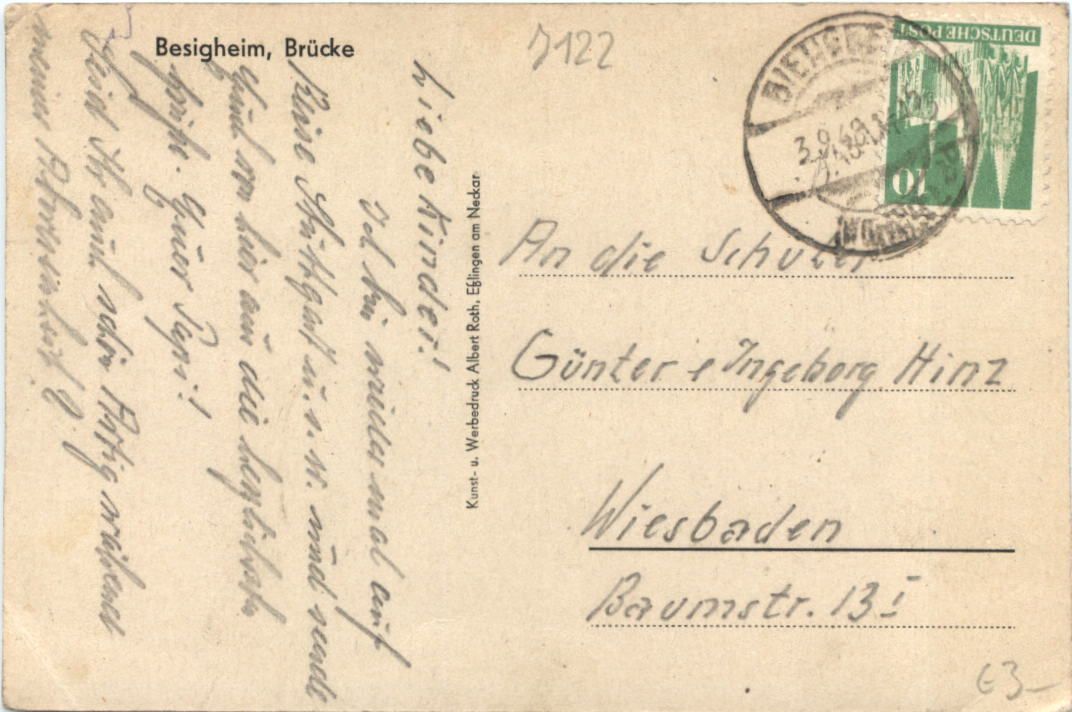 Besigheim, Brücke
J122
DEUTSCHE POST
10
3.9.49
Liebe Kinder!
Ich bin wieder mal auf
Reise Stuttgart u.s.w. und sende
Euch von hier aus die herzlichsten
Grüße. Euer Papi!
Seid Ihr auch schön artig während
meiner Abwesenheit?
Kunst- u. Werbedruck Albert Roth, Eßlingen am Neckar
An die Schüler
Günter e Ingeborg Hinz
Wiesbaden
Baumstr. 13 I
€3–